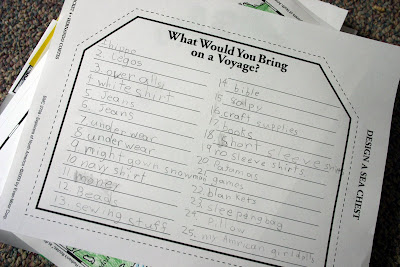 What Would You Bring
on a Voyage?
2 Legos
3 overally
4 white shirt
5 Jeans
6 Jeans
7 underwear
8 underwear
9 night gown snowman
10 navy shirt
11 money
12 Beads
13. sewing stuff
14. bible
15 soapy
16 craft supplies
17 books
18 short sleeve
19 no sleeve shirts
20 Pajamas
21 games
22 blankets
23 sleepingbag
24 Pillow
25. my Amrican girl dolls
DESIGN A SEA CHEST